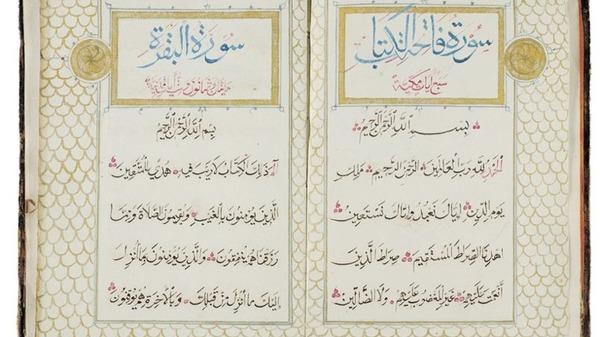 سورة فاتحة الكتاب
سبع ايات مكية
بسم الله الرحمن الرحيم
الحمد لله رب العالمين الرحمن الرحيم ملك
يوم الدين اياك نعبد واياك نستعين
اهدنا الصراط المستقيم صراط الذين
انعمت عليهم غير المغضوب عليهم ولا الضالين
سورة البقرة
بسم الله الرحمن الرحيم
الم ذلك الكتاب لا ريب فيه هدى للمتقين
الذين يؤمنون بالغيب ويقيمون الصلاة ومما
رزقناهم ينفقون والذين يؤمنون بما انزل
اليك وما انزل من قبلك وبالاخرة هم يوقنون